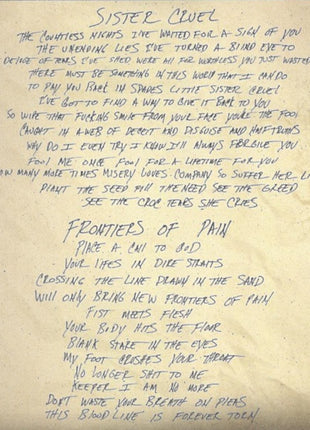 SISTER CRUEL
THE COUNTLESS NIGHTS I'VE WAITED FOR A SIGN OF YOU
THE UNENDING LIES I'VE TURNED A BLIND EYE TO
DELUGE OF TEARS I'VE SHED WERE ALL FOR WORTHLESS YOU JUST WASTED
THERE MUST BE SOMETHING IN THIS WORLD THAT I CAN DO
TO PAY YOU BACK IN SPADES LITTLE SISTER CRUEL
I'VE GOT TO FIND A WAY TO GIVE IT BACK TO YOU
SO WIPE THAT FUCKING SMILE FROM YOUR FACE YOU'RE THE FOOL
CAUGHT IN A WEB OF DECEIT AND DISGUISE AND HALF TRUTHS
WHY DO I EVEN TRY I KNOW I'LL ALWAYS FORGIVE YOU
FOOL ME ONCE FOOL FOR A LIFETIME FOR YOU
HOW MANY MORE TIMES MISERY LOVES COMPANY SO SUFFER HER
PLANT THE SEED FILL THE NEED SEE THE GREED
SEE THE CROC TEARS SHE CRIES
FRONTIERS OF PAIN
PLACE A CALL TO GOD
YOUR LIFES IN DIRE STRAITS
CROSSING THE LINE DRAWN IN THE SAND
WILL ONLY BRING NEW FRONTIERS OF PAIN
FIST MEETS FLESH
YOUR BODY HITS THE FLOOR
BLANK STARE IN THE EYES
MY FOOT CRUSHES YOUR THROAT
NO LONGER SHIT TO ME
KEEPER I AM NO MORE
DON'T WASTE YOUR BREATH ON PLEAS
THIS BLOOD LINE IS FOREVER TORN